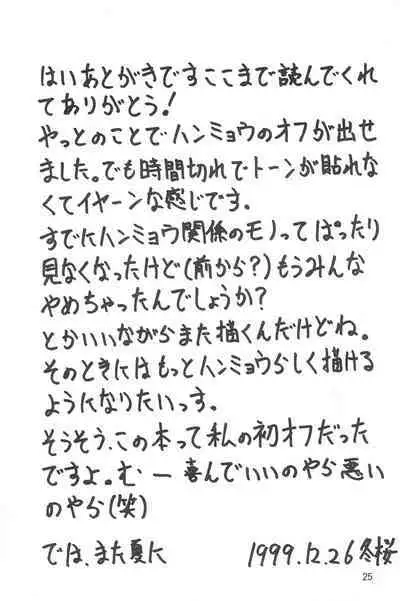 はいあとがきですここまで読んでくれ
てありがとう!
やっとのことでハンミョウのオフが出せ
ました。でも時間切れでトーンが貼れな
くてイヤーンな感じです.
すでにハンミョウ関係のモノってぱったり
見なくなったけど(前から?)もうみんな
やめちゃったんでしょうか?
とかいいながらまた描くんだけどね。
そのときにはもっとハンミョウらしく描ける
ようになりたいっす。
そうそう、この本って私の初オフだった
ですよ。む ー 喜んでいいのやら悪い
のやら(笑)
では、また夏に 1999.12.26 冬桜
25